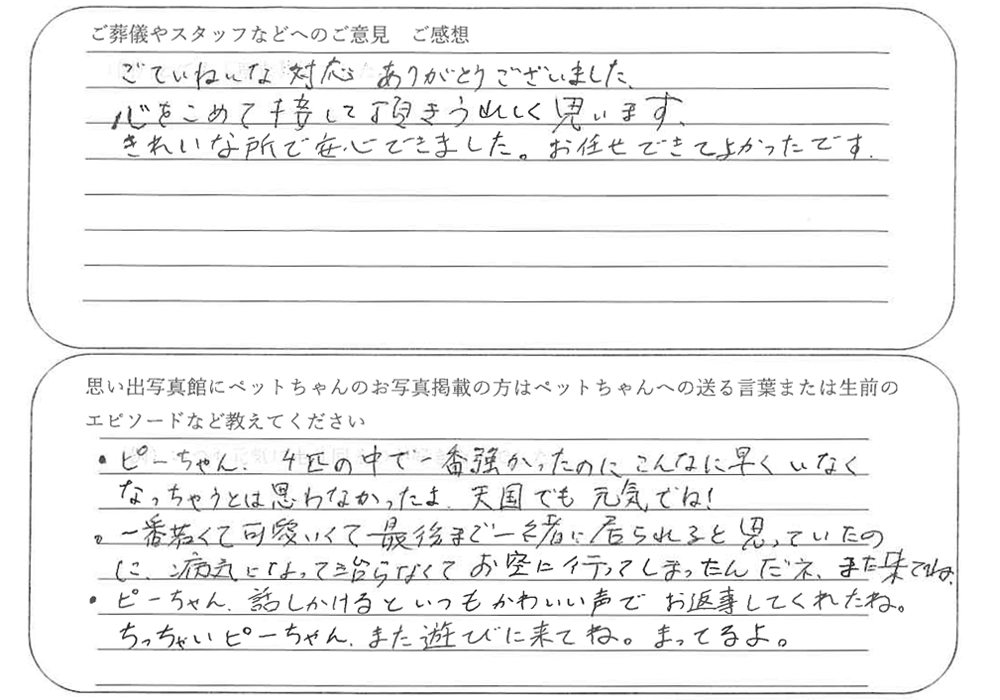 ご葬儀やスタッフなどへのご意見　ご感想
ごていねいな対応 ありがとうございました、
心をこめて接して頂きうれしく思います、
きれいな所で安心できました。お任せできてよかったです.
思い出写真館にペットちゃんのお写真掲載の方はペットちゃんへの送る言葉または生前の
エピソードなど教えてください
・ピーちゃん、4匹の中で一番強かったのに こんなに早く いなく
なっちゃうとは思わなかったよ、天国でも元気でね!
。一番若くて可愛いくて最後まで一緒に居られると思っていたの
に、病気になって治らなくてお空に行ってしまったんだネ、また来てね、
・ピーちゃん、話しかけるといつもかわいい声でお返事してくれたね。
ちっちゃいピーちゃん、また遊びに来てね。まってるよ。